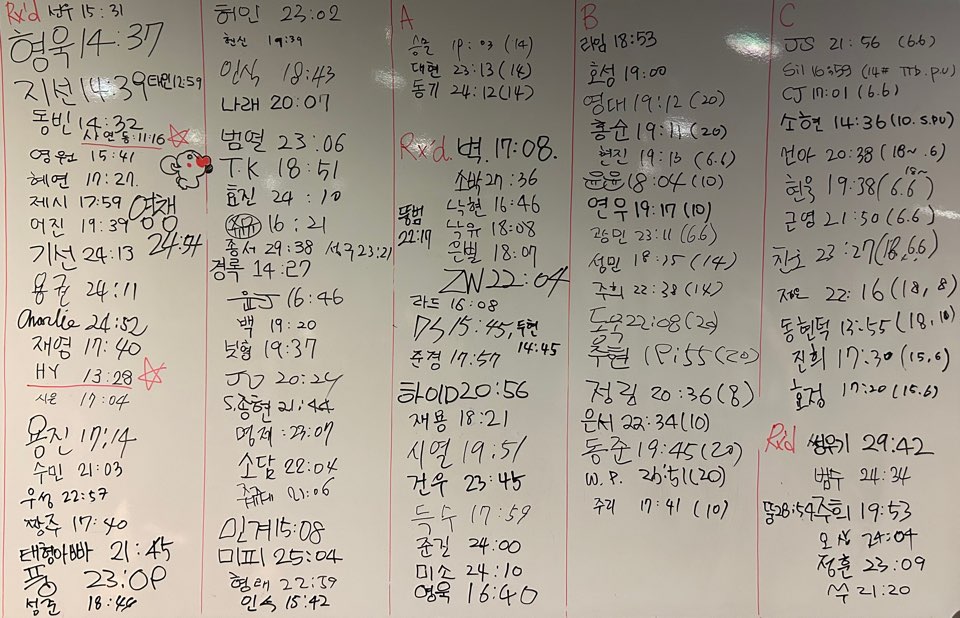 Rx'd 성우 15:31
형욱 14:37
지선 14:39 태민 12:59
동빈 14:32
사연동:11:16
영원 15:41
혜연 17:27
제시 17:59
어진 19:39
24:54
기선 24:13
용권 24:11
Charlie 24:52
재영 17:40
HY 13:28
시온 17:04
용진 17:14
수민 21:03
우성 22:57
짱주 17:40
태형아빠 21:45
풍 23:09
성준 18:46
허민 23:02
현신 19:39
인식 18:43
나래 20:07
범열 23:06
T.K 18:51
효진 24:10
16:21
종서 29:38 성구 23:21
경록 14:27
윤J 16:46
백 19:20
보형 19:37
JO 20:24
S.종현 21:44
명제 :23:07
소담 22:04
21:06
민계 15:08
미피 25:04
형태 22:59
인숙 15:42
A
승문 19:03 (14)
대현 23:13 (14)
동기 24:12 (14)
Rx'd. 벽. 17:08.
소바 27:36
뚱범 22:17
낙현 16:46
낙유 18:08
은빌 18:07
ZW 22:04
라드 16:08
15:45, 두현 14:45
준경 17:57
하이D 20:56
재용 18:21
시열 19:51
건우 23:45
득수 17:59
준길 24:00
미소 24:10
영욱 16:40
B
라임 18:53
효성 19:00
영대 19:12 (20)
홍순 19:11 (20)
현진 19:13 (6.6)
윤윤 18:04 (10)
연우 19:17 (10)
광민 23:11 (6.6)
성민 18:25 (14)
주희 22:38 (14)
도욱 22:08 (20)
주현 19:55 (20)
정림 20:36 (8)
은서 22:34 (10)
동준 19:45 (20)
W.P. 20:51 (20)
주리 17:41 (10)
C
JS 21:56 (6.6)
Sil 16:59 (14# TTb.P.U)
CJ 17:01 (6.6)
소현 14:36 (10. S.PU)
선아 20:38 (18~.6)
현욱 19:38 (6.6 18~)
근영 21:50 (6.6)
찬호 23:27 (18, 6.6)
22:16 (18, 8)
동현덕 13:55 (18, 10)
진희 17:30 (15, 6)
효정 17:20 (15.6)
Rx'd 성우기 29:42
범수 24:34
뚱 28:54 주희 19:53
오상 24:04
정훈 23:09
수 21:20